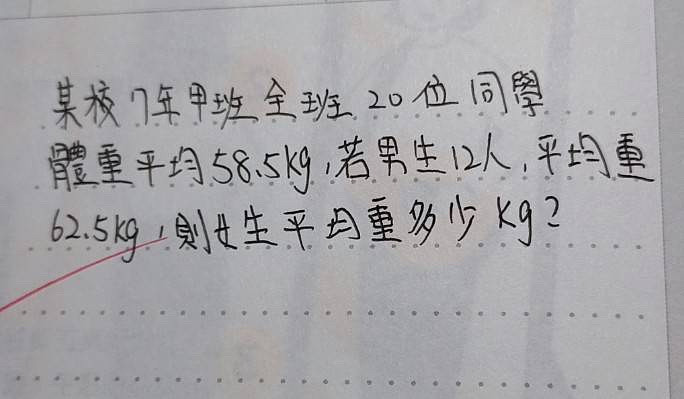 某校7年甲班全班20位同學
體重平均58.5kg,若男生12人,平均重
62.5kg,則女生平均重多少kg?